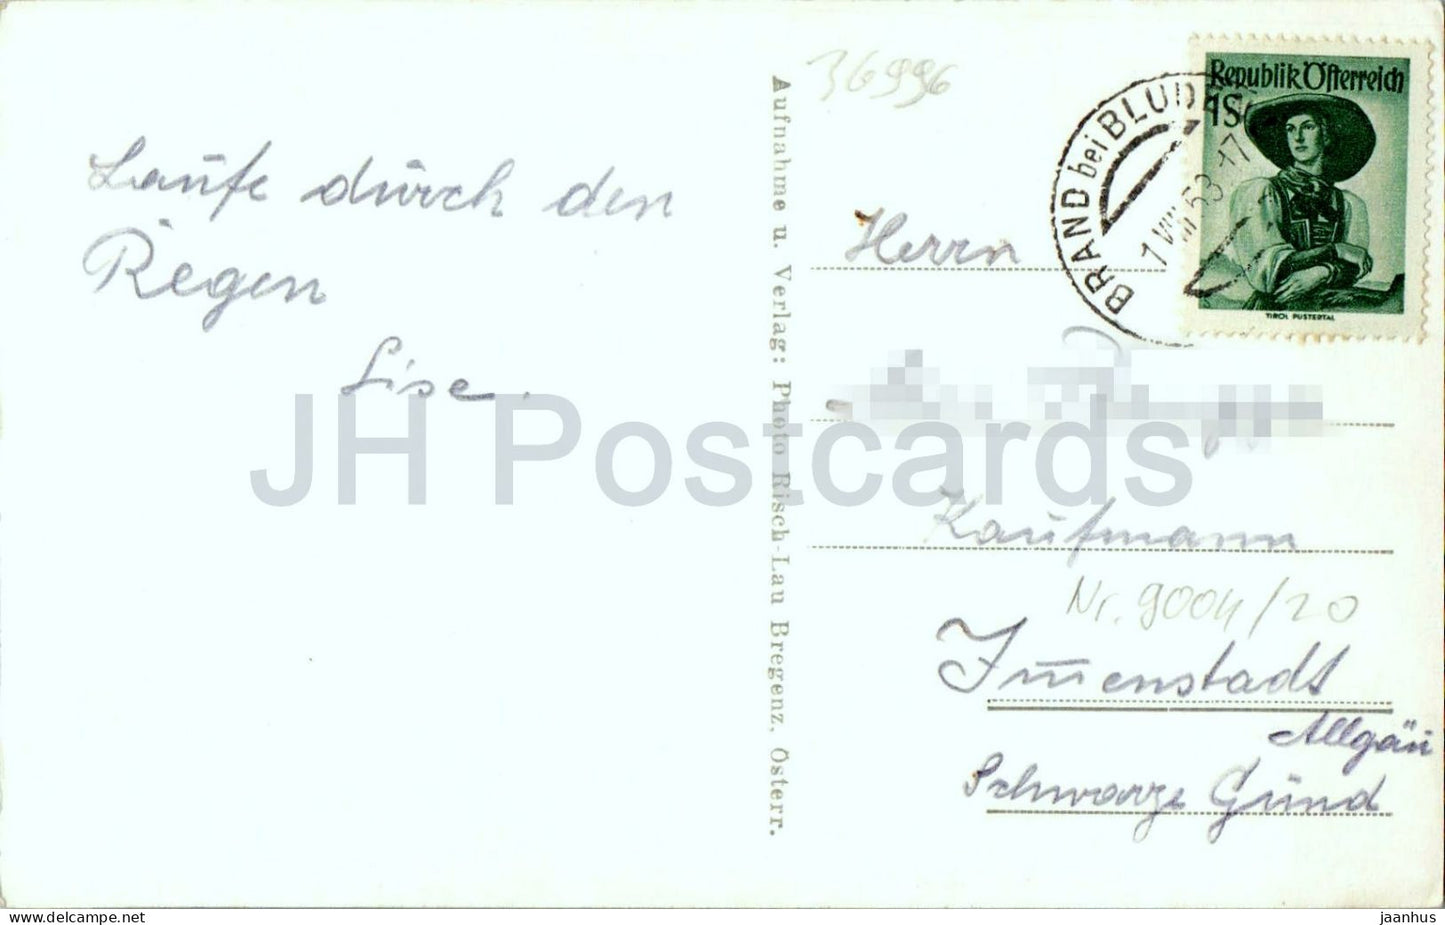 Laufe durch den
Regen
Lise.
Aufnahme u. Verlag: Photo Risch-Lau Bregenz, Österr.
36996
BRAND bei BLUD
1 VIII 53-17
Republik Österreich
1S
TIROL PUSTERTAL
Herrn
Kaufmann
Nr. 9004/20
Immenstadt
Allgäu
Schwarze Gund
JH Postcards
jaanhus